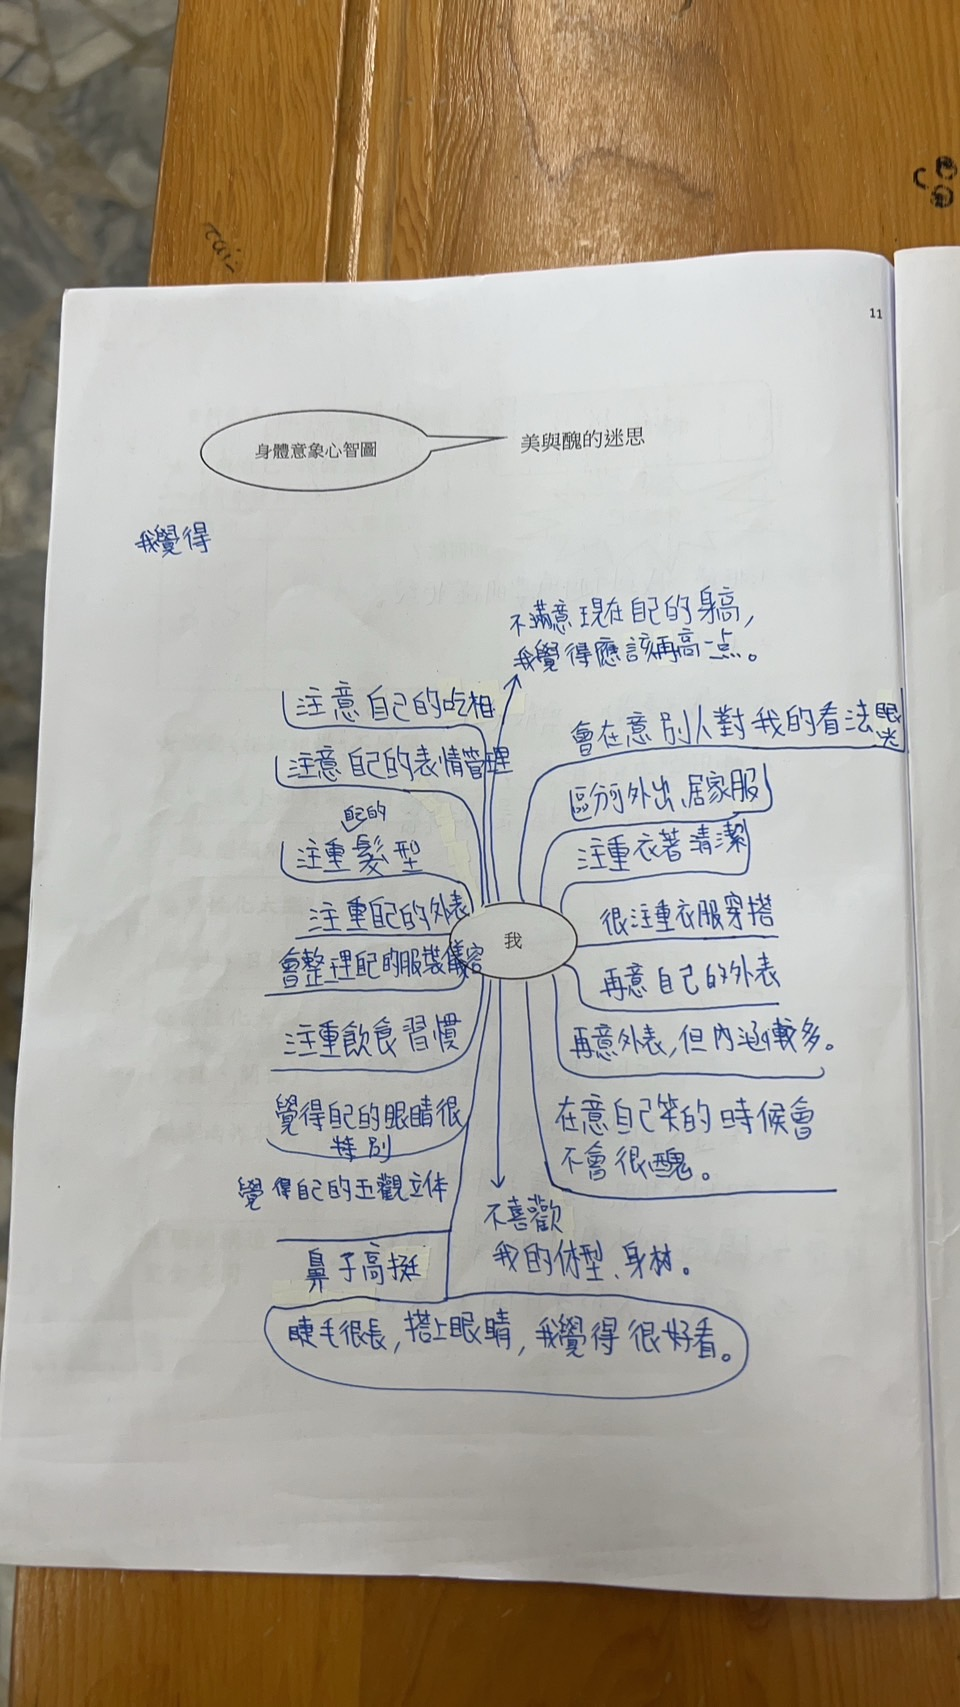 11
身體意象心智圖
美與醜的迷思
我覺得
不滿意現在自己的身高,
我覺得應該再高一點。
注意自己的吃相
注意自己的表情管理
自己的
注重髮型
注重自己的外表
會整理自己的服裝儀容
注重飲食習慣
覺得自己的眼睛很
特別
覺得自己的五觀立体
鼻子高挺
睫毛很長,搭上眼睛,我覺得很好看。
會在意別人對我的看法眼光
區分外出、居家服
注重衣著清潔
我
很注重衣服穿搭
再意自己的外表
再意外表,但內涵較多。
在意自己笑的時候會
不會很醜。
不喜歡
我的体型、身材。